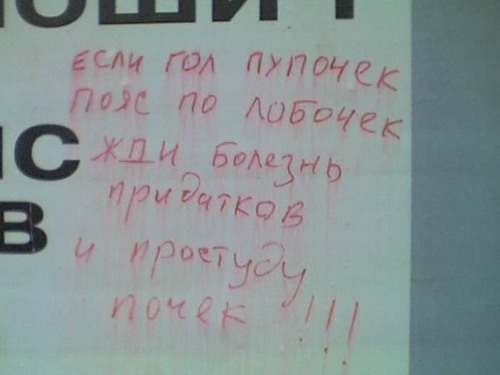 ЕСЛИ ГОЛ ПУПОЧЕК
ПОЯС ПО ЛОБОЧЕК
ЖДИ БОЛЕЗНЬ
придатков
и простуду
почек !!!
ИС
В